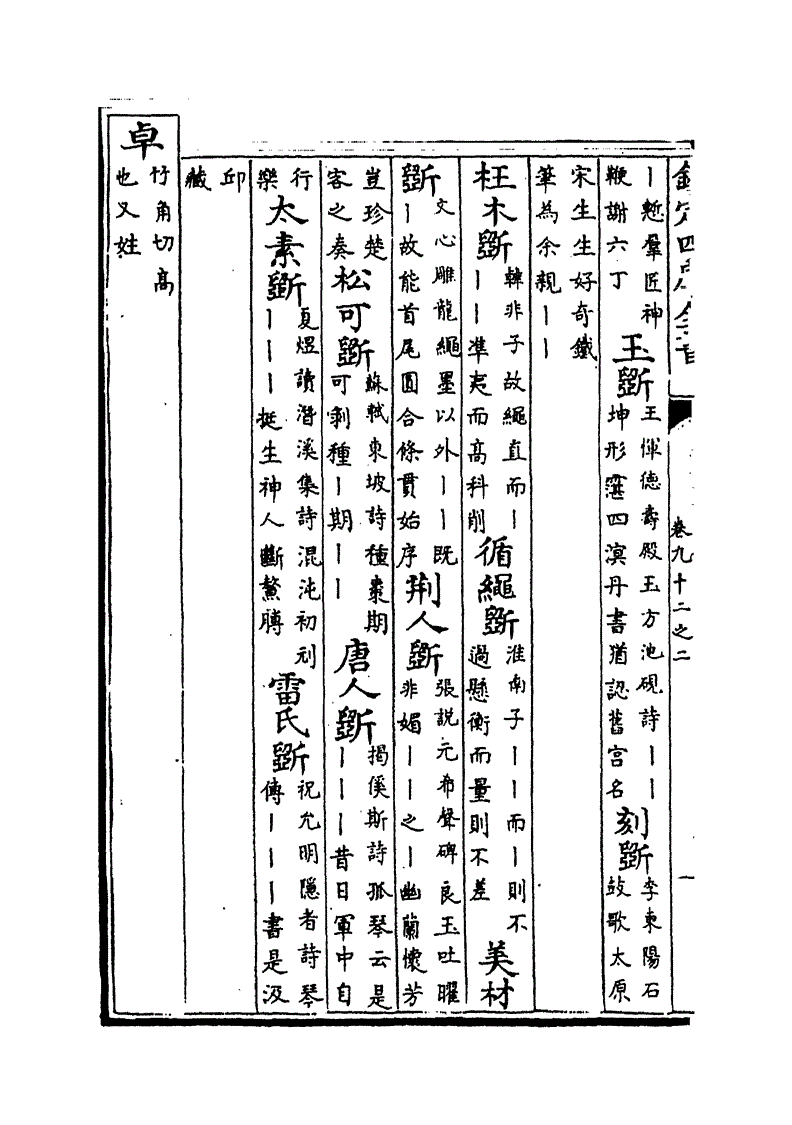 欽定四庫全書
卷九十二之二
丨慙羣匠神
鞭謝六丁
玉斵
王惲德壽殿玉方池硯詩丨丨
坤形四溟丹書猶認舊宫名
刻斵
李東陽石
鼓歌太原
宋生生好奇鐵
筆為余親丨丨
枉木斵
韓非子故繩直而丨
丨丨準夷而髙科削
循繩斵
淮南子丨丨而丨則不
過懸衡而量則不差
美材
斵
文心雕龍繩墨以外丨丨既
丨故能首尾圓合條貫始序
荆人斵
張説元希聲碑良玉吐曜
非媚丨丨之丨幽蘭懷芳
豈珍楚
客之奏
松可斵
蘇軾東坡詩種棗期
可剝種丨期丨丨
唐人斵
揭傒斯詩孤琴云是
丨丨丨昔日軍中自
行
樂
太素斵
夏煜讀潛溪集詩混沌初刓
丨丨丨挺生神人斷鰲膊
雷氏斵
祝允明隠者詩琴
傳丨丨丨書是汲
邱
藏
卓
竹角切髙
也又姓